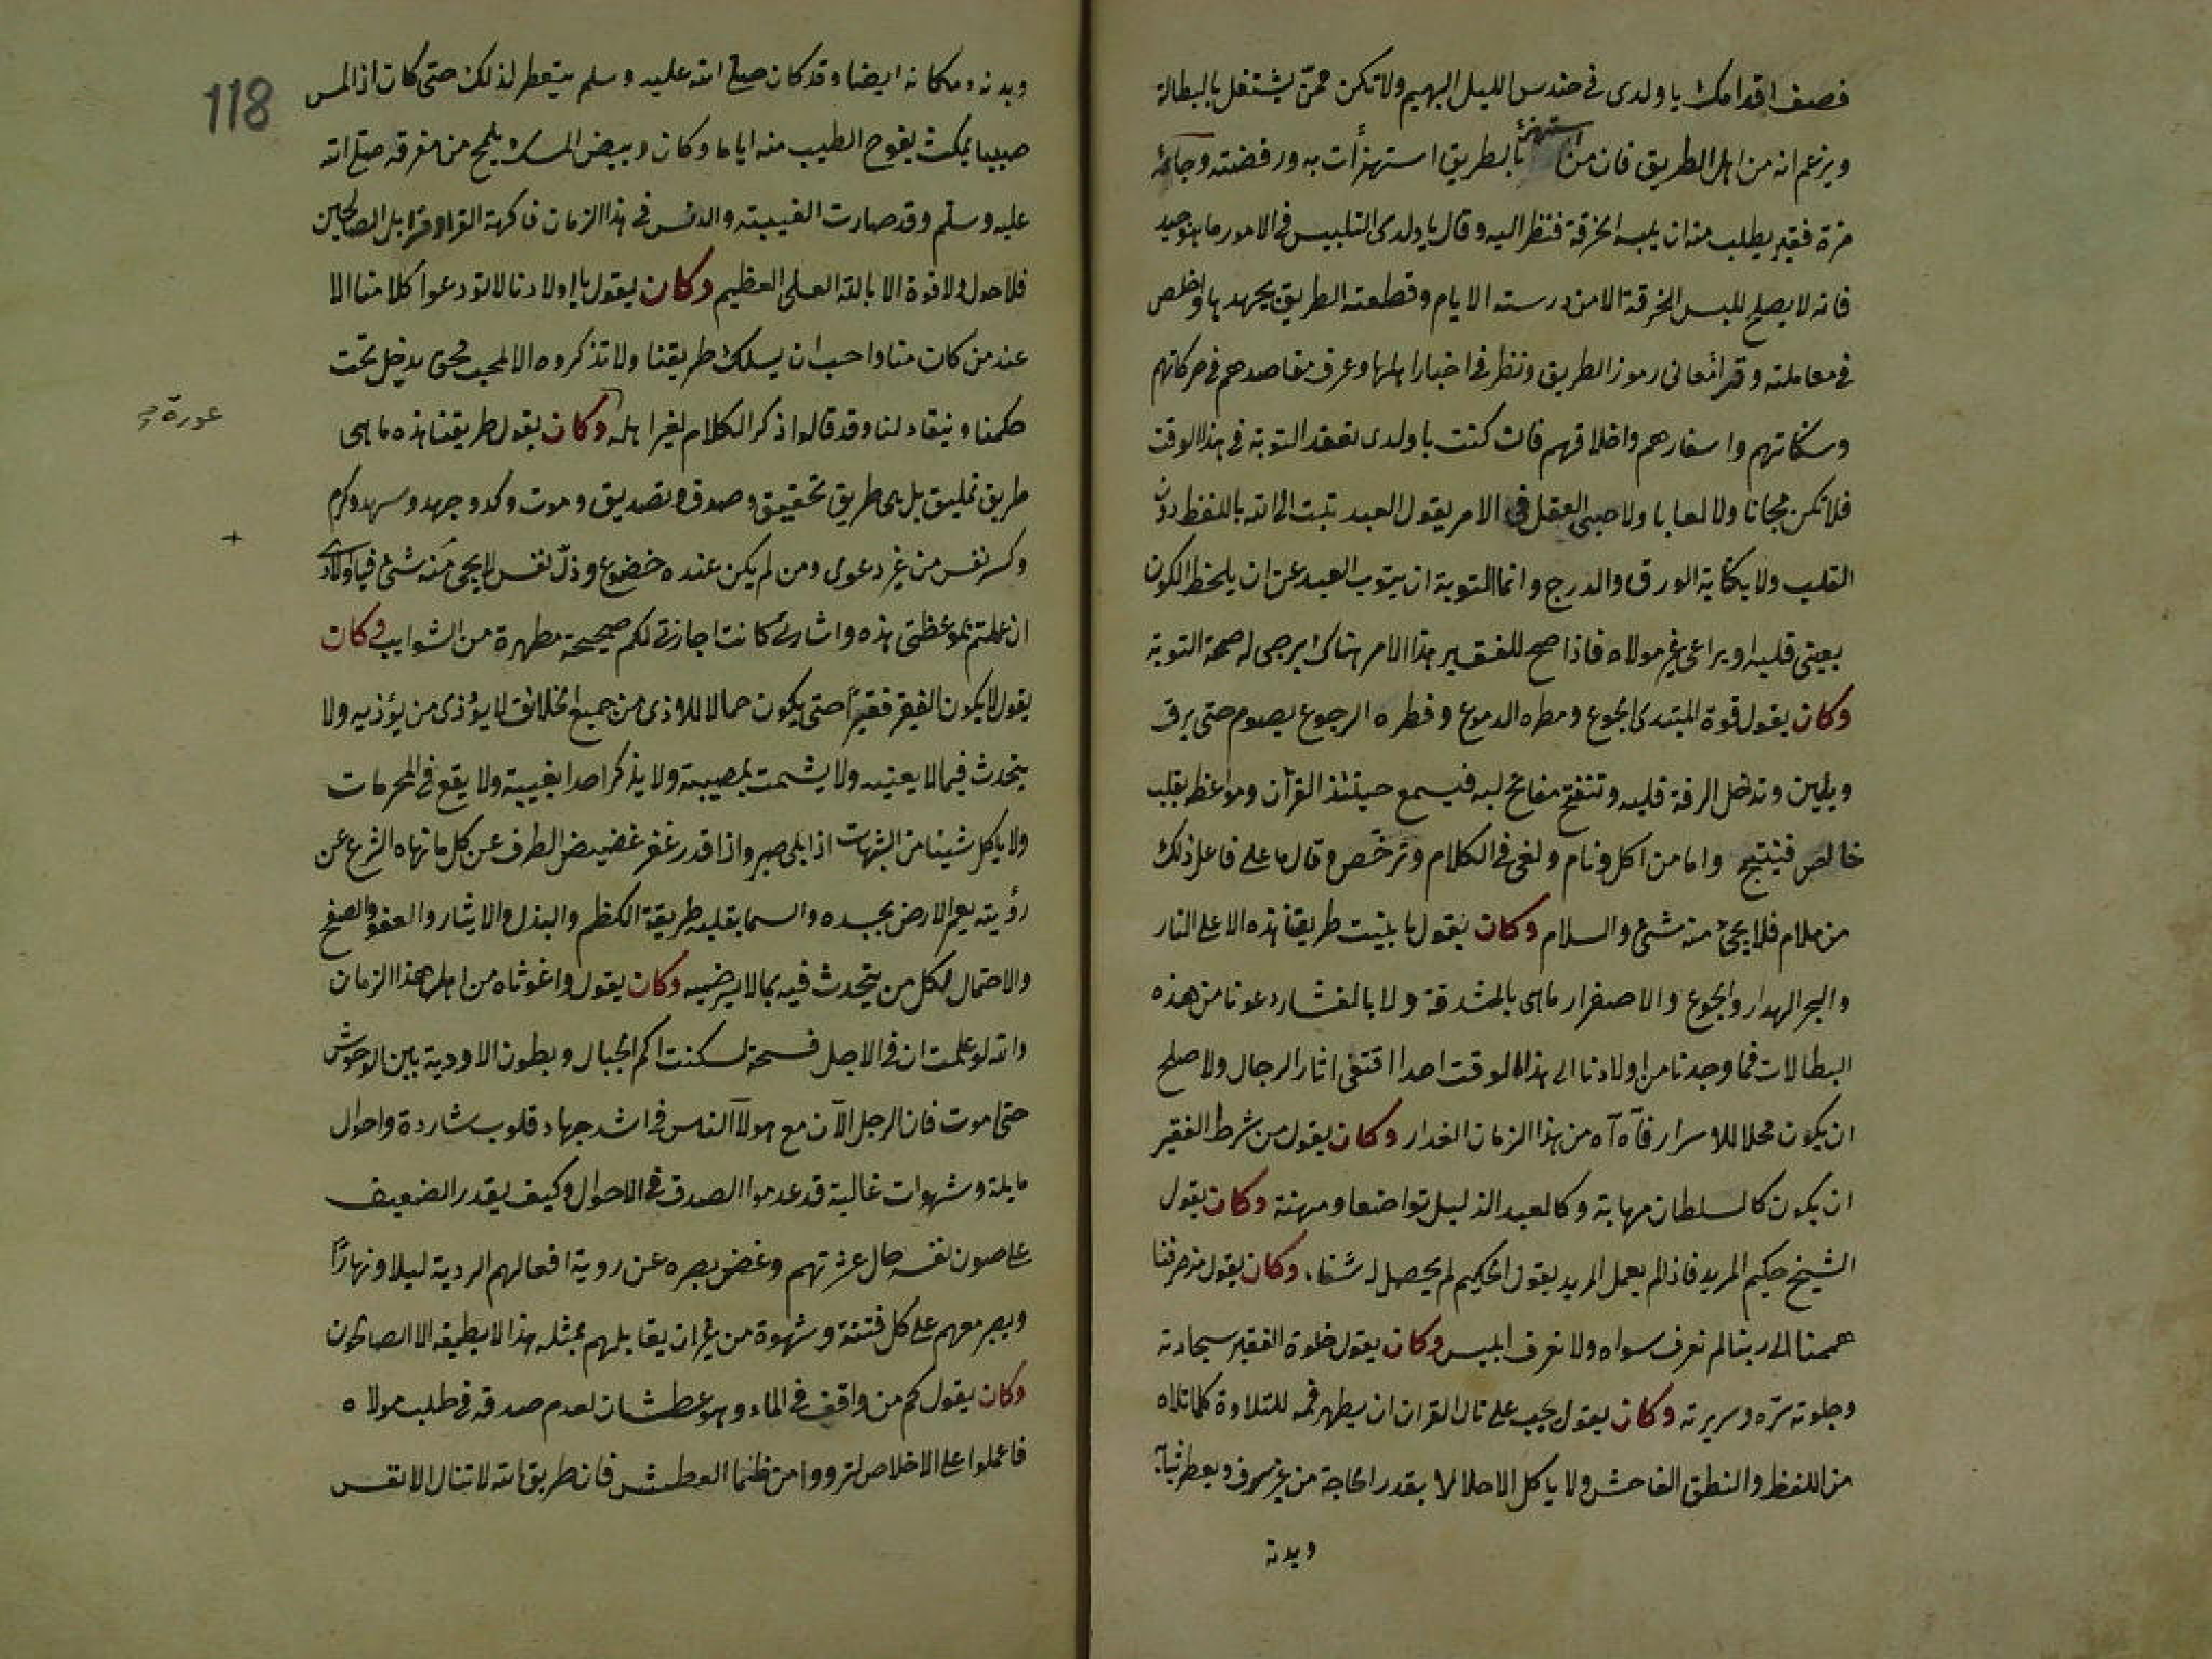 فصف اقدامك يا ولدى فى حندس الليل البهيم ولا تكن ممن يشتغل بالبطالة
ويزعم انه من اهل الطريق فان من استهزئ بالطريق استهزأت به ورفضته وجآئه
مرة فقير يطلب منه ان يلبسه الخرقة فنظر اليه وقال يا ولدى التلبيس فى الامور ما هو جيد
فانه لا يصلح للبس الخرقة الا من درسته الايام وقطعته الطريق بجهدها واخلص
فى معاملته وقرأ معانى رموز الطريق ونظر فى اخبار اهلها وعرف مقاصدهم فى حركاتهم
وسكناتهم واسفارهم واخلاقهم فان كنت يا ولدى تعقد التوبة فى هذا الوقت
فلا تكن مجانا ولا لعابا ولا صبى العقل فى الامر يقول العبد تبت الى الله باللفظ دون
القلب ولا بكتابة الورق والدرج وانما التوبة ان يتوب العبد عن ان يلحظ الكون
بعينى قلبه او يراعى غير مولاه فاذا صح للفقير هذا الامر هناك يرجى له صحة التوبة
وكان يقول قوة المبتدى الجوع ومطره الدموع وفطره الرجوع يصوم حتى يرق
ويلين وتدخل الرقة قلبه وتنفتح مفاتح لبه فيسمع حينئذ القرآن ومواعظه بقلب
خالص فينتج واما من اكل ونام ولغى فى الكلام وترخّص وقال ما على فاعل ذلك
من ملام فلا يجئ منه شئ والسلام وكان يقول ما بنيت طريقنا هذه الا على النار
والبحر الهدار والجوع والاصفرار ماهى بالمشدقة ولا بالفشار دعونا من هذه
البطالات فما وجدنا من اولادنا الى هذا الوقت احدا اقتفى اثار الرجال ولا صلح
ان يكون محلا للاسرار فآه آه من هذا الزمان الغدار وكان يقول من شرط الفقير
ان يكون كالسلطان مهابة وكالعبد الذليل تواضعا ومهنة وكان يقول
الشيخ حكيم المريد فاذا لم يعمل المريد بقول الحكيم لم يحصل له شفاء وكان يقول مذ صرفنا
هممنا الى ربنا لم نعرف سواه ولا نعرف ابليس وكان يقول خلوة الفقير سجادته
وجلوته سرّه وسريرته وكان يقول يجب على تال القران ان يطهر فمه للتلاوة كلما تلاه
من اللغط والنطق الفاحش ولا ياكل الا حلالا بقدر الحاجة من غير سرف ويعطر ثيابه
وبدنه
118
وبدنه ومكانه ايضا وقد كان صلى الله عليه وسلم يتعطر لذلك حتى كان اذا لمس
صبيا يمكث يفوح الطيب منه اياما وكان وبيض المسك يلمح من مفرقه صلى الله
عليه وسلم وقد صارت الغيبته والدنس فى هذا الزمان فاكهة القراء وقرا بل الصالحين
فلا حول ولا قوة الا بالله العلى العظيم وكان يقول يا اولادنا لا تودعوا كلامنا الا
عند من كان منا واحب ان يسلك طريقنا ولا تذكروه الا لمحب محق يدخل تحت
حكمنا وينقاد لنا وقد قالوا ذكر الكلام لغير اهله وكان يقول طريقنا هذه ماهى
عورة صح
طريق تمليق بل هى طريق تحقيق وصدق وتصديق وموت وكد وجهد وسهد وكرم
وكسر نفس من غير دعوى ومن لم يكن عنده خضوع وذلّ نفس لا يجئ منه شئ فيا اولادى
ان عملتم بموعظتى هذه واشارتى كانت اجازتى لكم صحيحة مطهرة من الشوايب وكان
يقول لا يكون الفقير فقيرًا حتى يكون حمالا للاذى من جميع الخلائق لا يؤذى من يؤذيه ولا
يتحدث فيما لا يعنيه ولا يشمت بمصيبة ولا يذكر احدا بغيبة ولا يقع فى المحرمات
ولا ياكل شيئا من الشبهات اذا بلى صبر واذا قدر غفر غضيض الطرف عن كل ما نهاه الشرع عن
رؤيته يعم الارض بجسده والسما بقلبه طريقة الكظم والبذل والايثار والعفو والصفح
والاحتمال لكل من يتحدث فيه بما لا يرضيه وكان يقول واغوثاه من اهل هذا الزمان
والله لو علمت ان فى الاجل فسحة لسكنت اكم الجبال وبطون الاودية بين الوحوش
حتى اموت فان الرجل الآن مع هولآ الناس فى اشد جهاد قلوب شاردة واحوال
مايلة وشهوات غالبة قد عدموا الصدق فى الاحوال وكيف يقدر الضعيف
على صون نفسه حال عشرتهم وغض بصره عن روية افعالهم الردية ليلا ونهارًا
ويصبر معهم على كل فتنة وشهوة من غير ان يقابلهم بمثله هذا لا يطيقه الا الصالحون
وكان يقول كم من واقف فى الماء وهو عطشان لعدم صدقه فى طلب مولاه
فاعملوا على الاخلاص لترووا من ظما العطش فان طريق الله لا تنال الا بقس